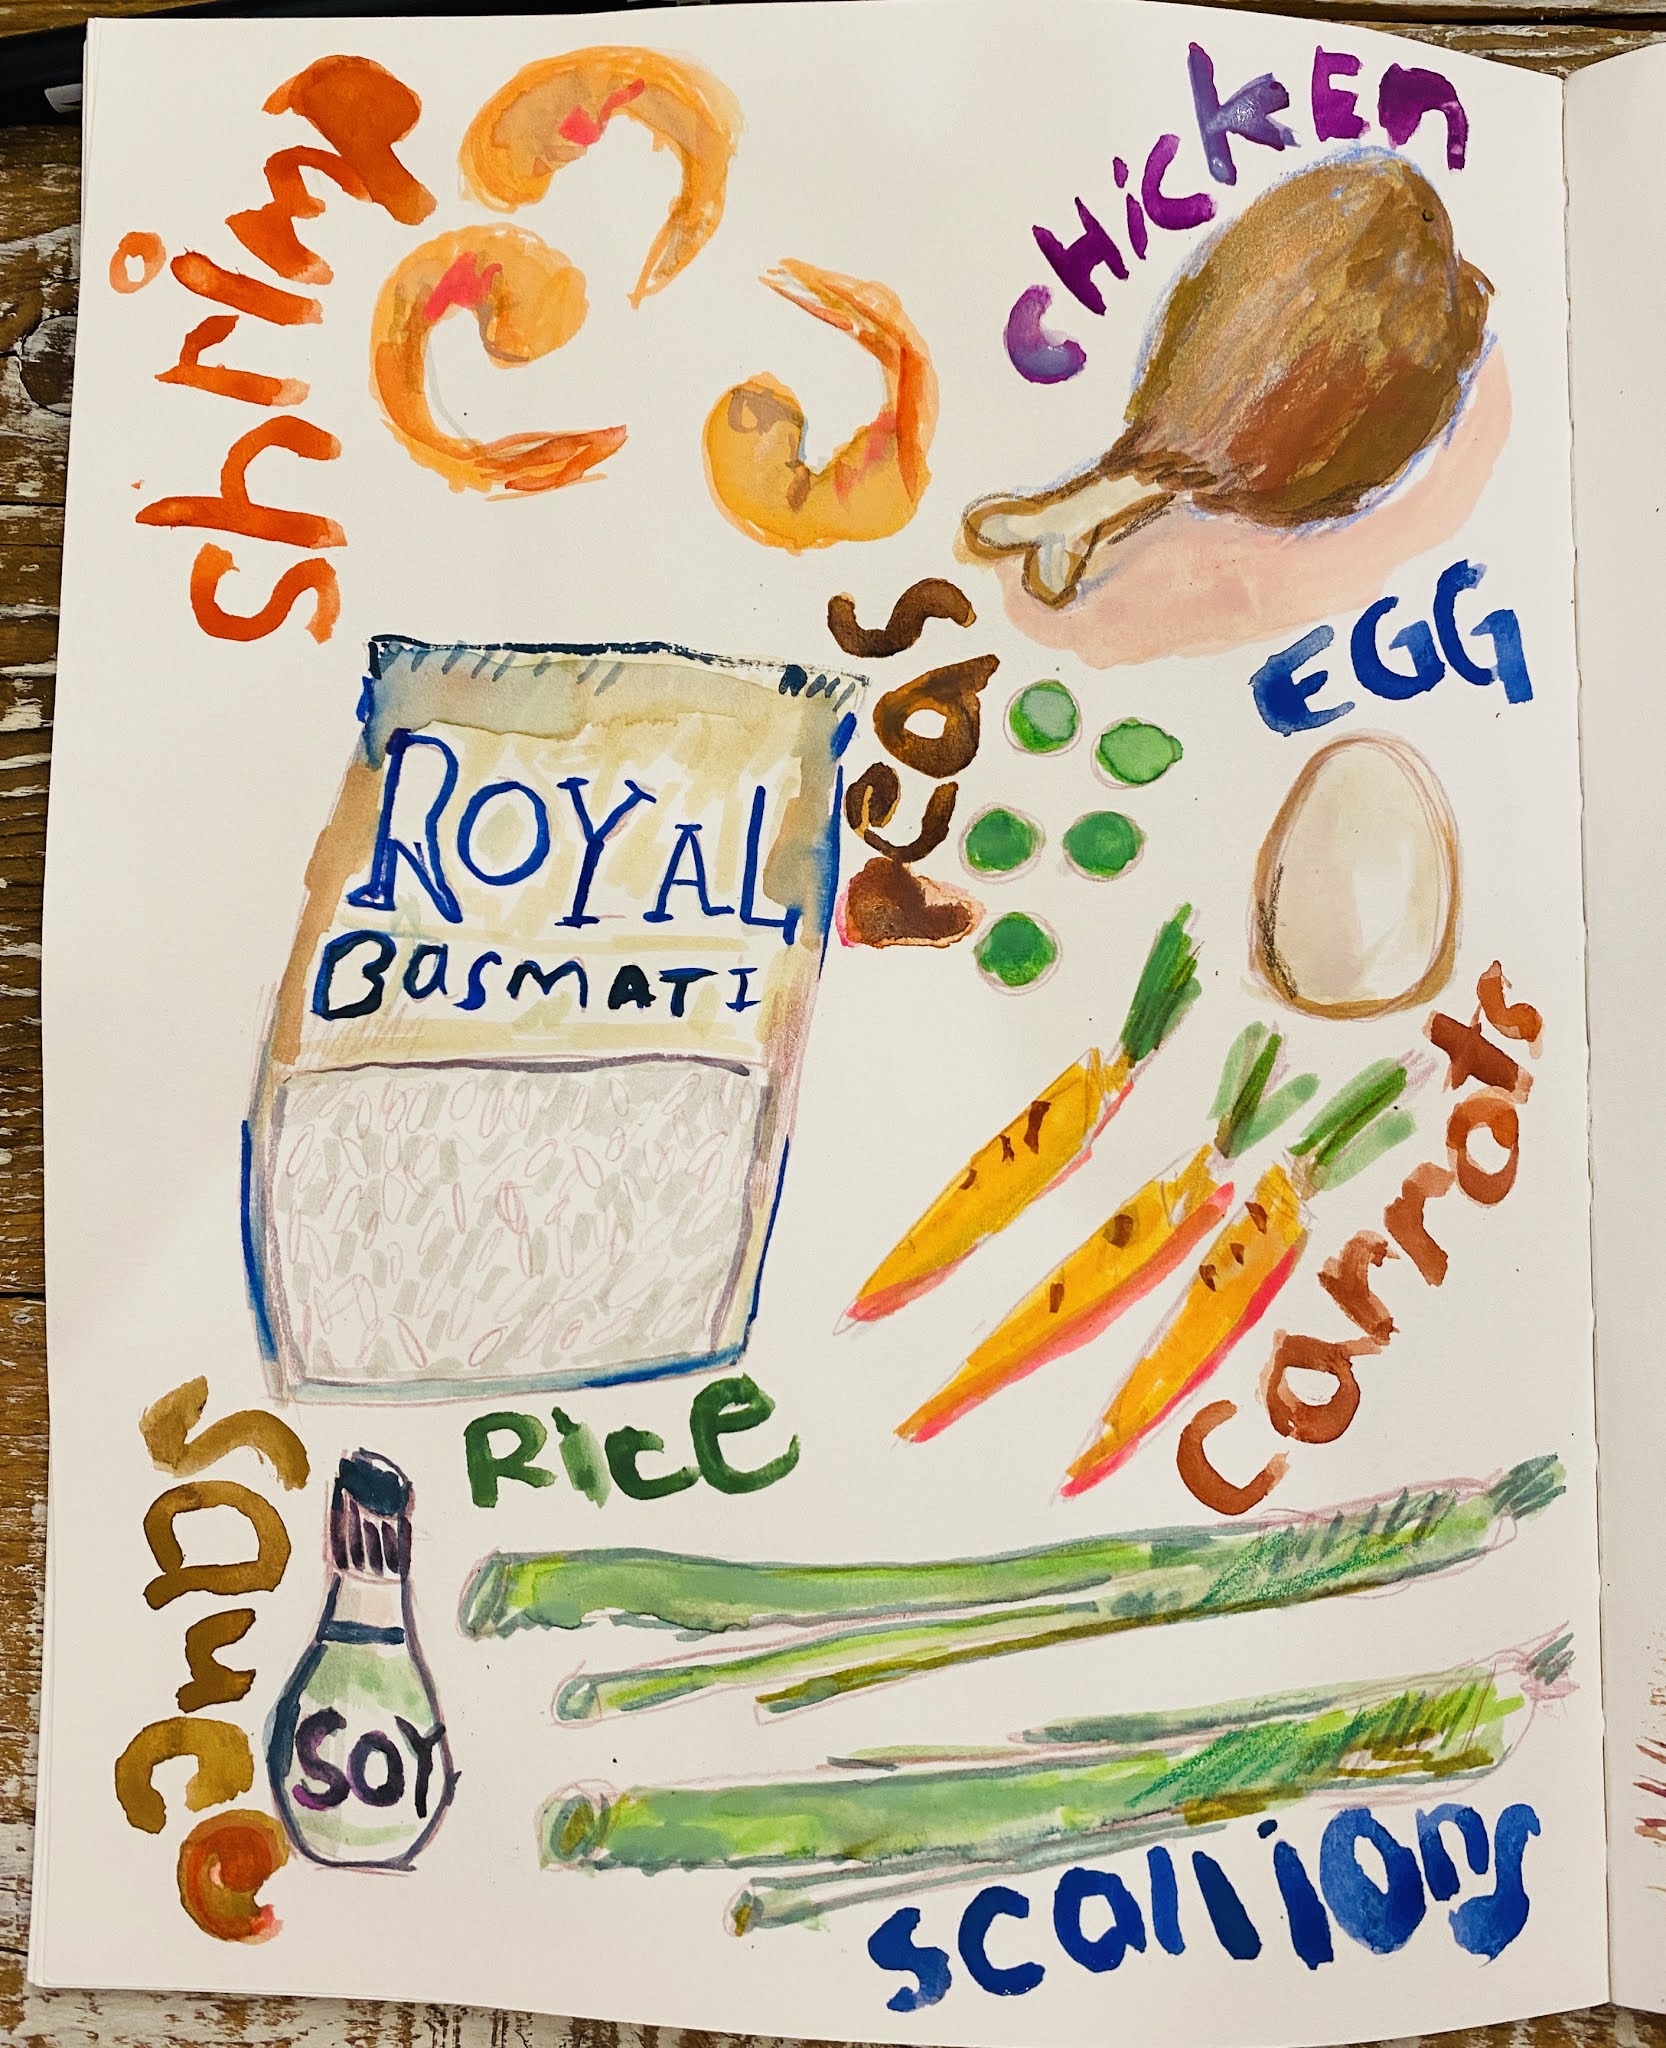 shrimp
CHicKEn
peas
EGG
ROYAL
BasmATI
carrots
RicE
sauce
SOY
scallions